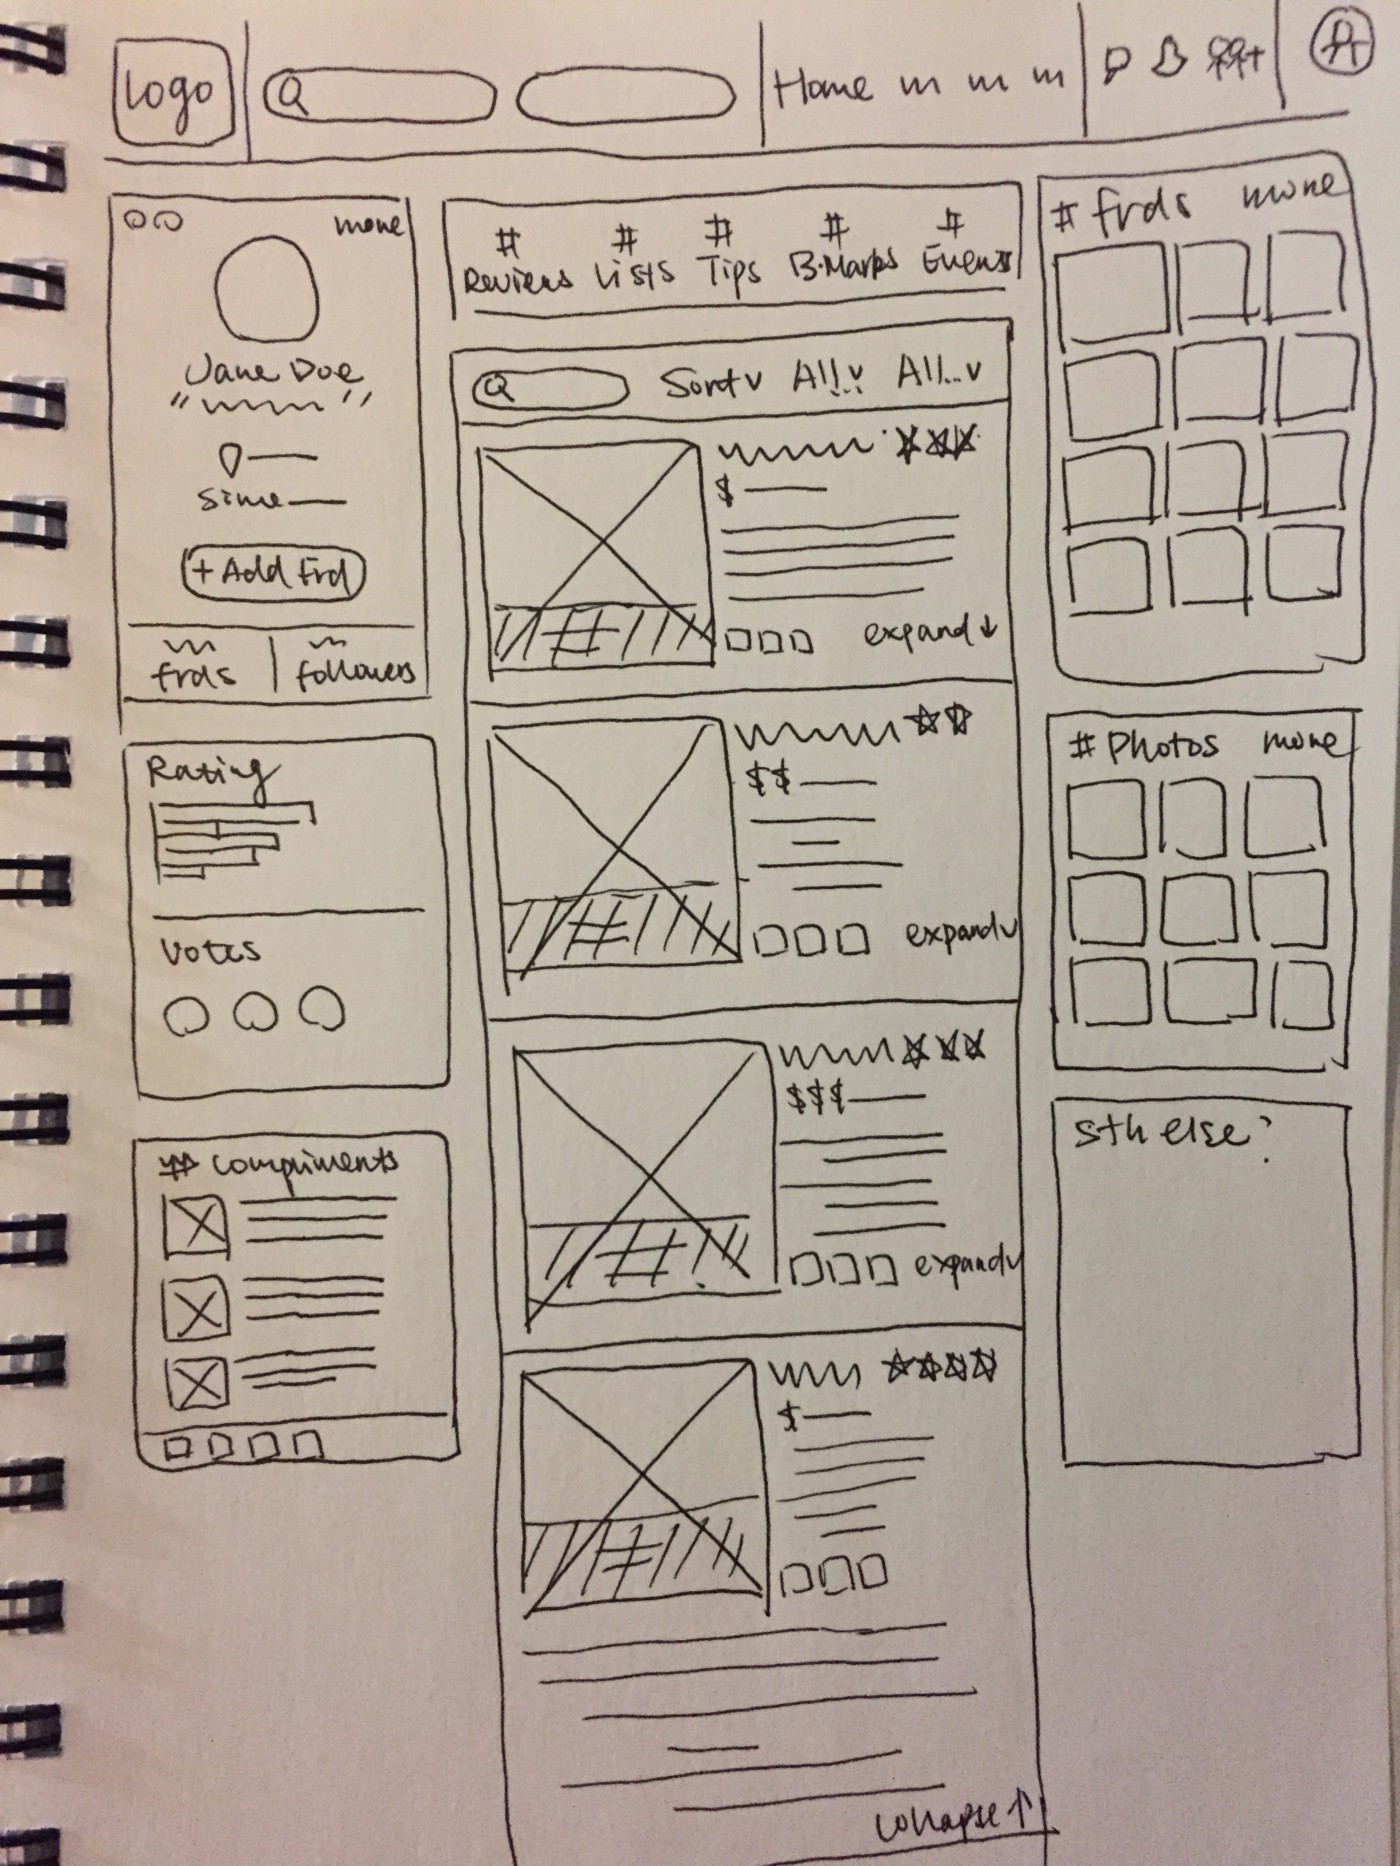 Logo
Home
more
Jane Doe
" "
Since
+ Add Frd
frds
followers
Rating
Votes
# Compliments
# # # # #
Reviews Lists Tips B.Marks Events
Sort v All... v All... v
$
# expand ↓
$$
# expand v
$$$
# expand v
$
#
collapse ↑
# frds more
# Photos more
sth else?